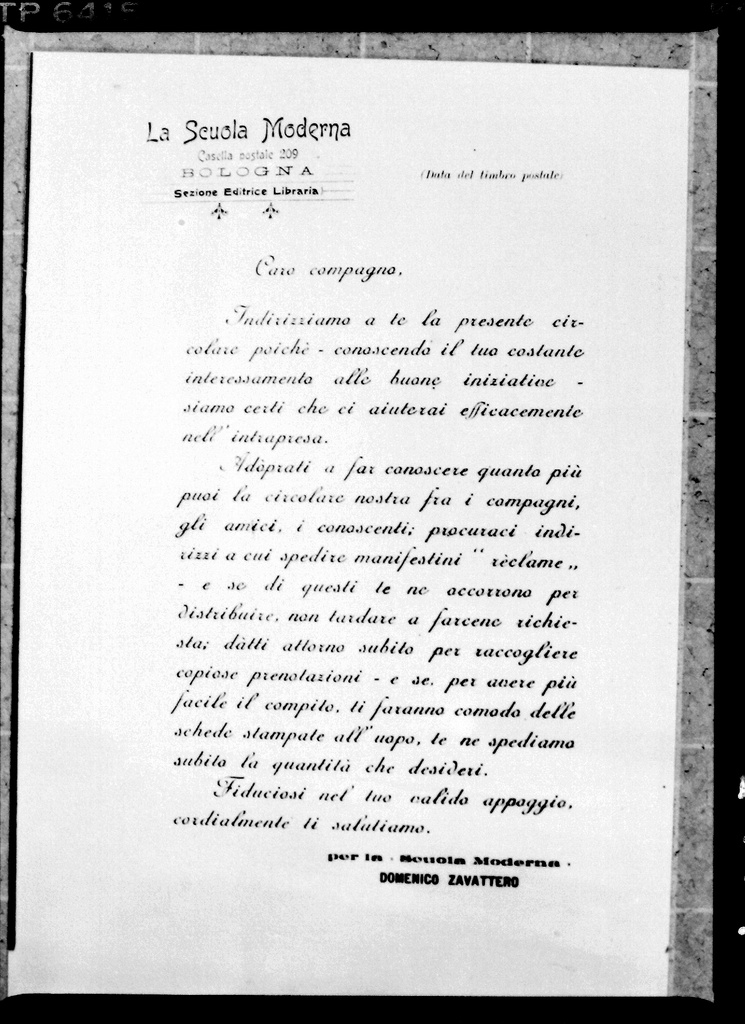 TP 6415
La Scuola Moderna
Casella postale 209
BOLOGNA
Sezione Editrice Libraria
(Data del timbro postale)
Caro compagno,
Indirizziamo a te la presente cir-
colare poichè - conoscendo il tuo costante
interessamento alle buone iniziative -
siamo certi che ci aiuterai efficacemente
nell'intrapresa.
Adòprati a far conoscere quanto più
puoi la circolare nostra fra i compagni,
gli amici, i conoscenti; procuraci indi-
rizzi a cui spedire manifestini “ rèclame „
- e se di questi te ne occorrono per
distribuire, non tardare a farcene richie-
sta; dàtti attorno subito per raccogliere
copiose prenotazioni - e se, per avere più
facile il compito, ti faranno comodo delle
schede stampate all'uopo, te ne spediamo
subito la quantità che desideri.
Fiduciosi nel tuo valido appoggio,
cordialmente ti salutiamo.
per la · Scuola Moderna ·
DOMENICO ZAVATTERO